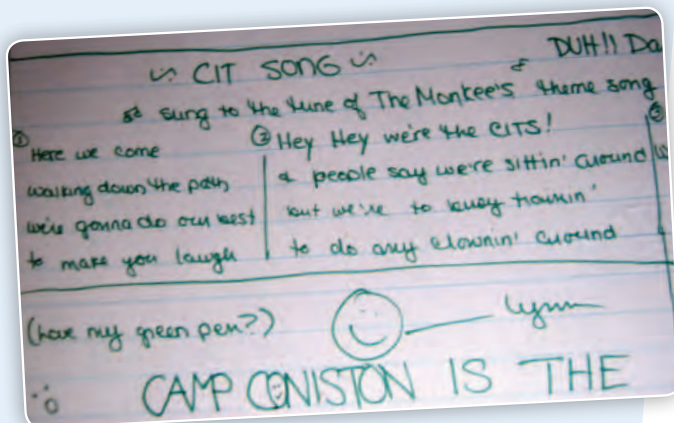 DUH!! Da
CIT SONG
sung to the tune of The Monkee's theme song
①
Here we come
walking down the path
we're gonna do our best
to make you laugh
② Hey Hey we're the CITS!
& people say we're sittin' around
but we're to busy trainin'
to do any clownin' around
③
(love my green pen?)
Lynn
CAMP CONISTON IS THE